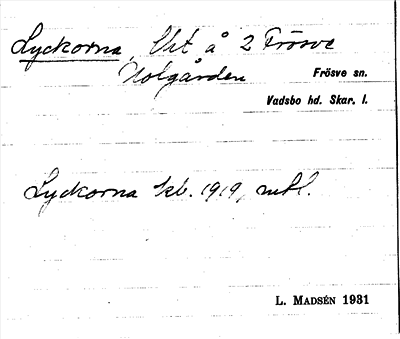 Lyckorna, Uht å 2 Frösve
Holgården
Frösve sn.
Vadsbo hd. Skar. l.
Lyckorna kb. 1919, mtl.
L. MADSÉN 1931